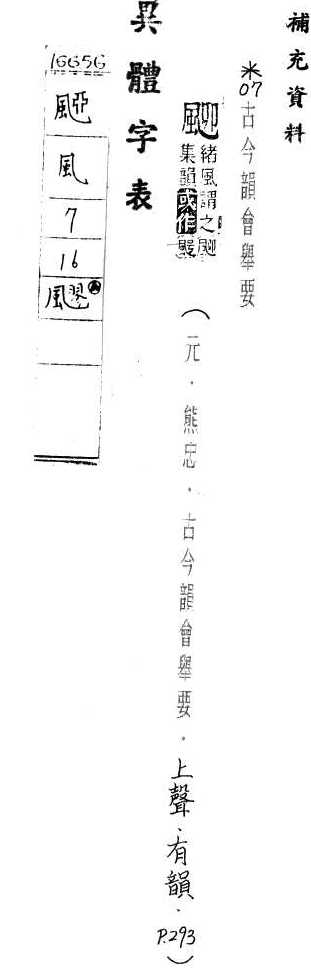 補充資料
※07古今韻會舉要
緒風謂之
集韻或作
（元．熊忠．古今韻會舉要．上聲．有韻．P.293）
異體字表
16656
風
7
16